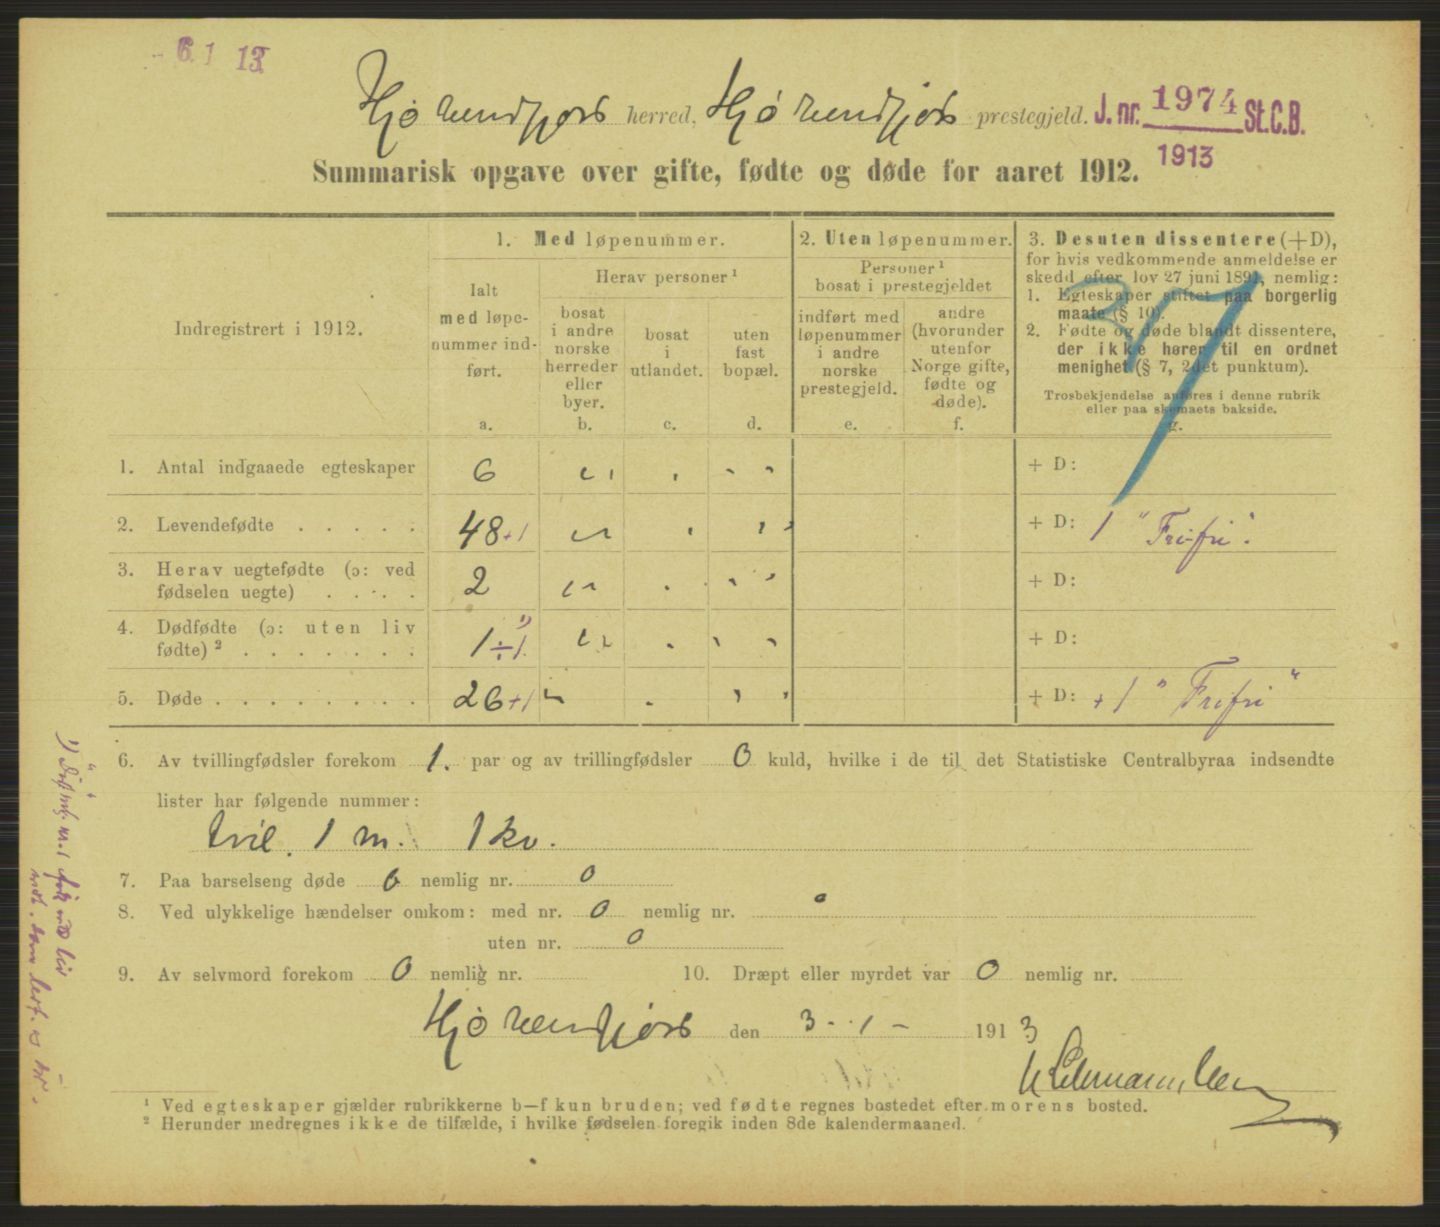 6 1 13
Hjørendfjors herred, Hjørendfjors prestegjeld. J. nr. 1974 St.C.B.
1913
Summarisk opgave over gifte, fødte og døde for aaret 1912.
Indregistrert i 1912.
1. Med løpenummer.
Ialt
med løpe-
nummer ind-
ført.
a.
Herav personer¹
bosat
i andre
norske
herreder
eller
byer.
b.
bosat
i
utlandet.
c.
uten
fast
bopæl.
d.
2. Uten løpenummer.
Personer¹
bosat i prestegjeldet
indført med
løpenummer
i andre
norske
prestegjeld.
e.
andre
(hvorunder
utenfor
Norge gifte,
fødte og
døde).
f.
3. Desuten dissentere (+D),
for hvis vedkommende anmeldelse er
skedd efter lov 27 juni 1891, nemlig:
1. Egteskaper stiftet paa borgerlig
maate (§ 10).
2. Fødte og døde blandt dissentere,
der ikke hører til en ordnet
menighet (§ 7, 2det punktum).
Trosbekjendelse anføres i denne rubrik
eller paa skemaets bakside.
g.
1. Antal indgaaede egteskaper 6 + D:
2. Levendefødte . . . . . 48 +1 + D: 1 "Fri-fri".
3. Herav uegtefødte (ɔ: ved
fødselen uegte) . . . . 2 + D:
4. Dødfødte (ɔ: uten liv
fødte)² . . . . . . . 1 ÷ 1 ¹⁾ + D:
5. Døde . . . . . . . . 26 +1 + D: +1 "Frifri"
6. Av tvillingfødsler forekom 1. par og av trillingfødsler 0 kuld, hvilke i de til det Statistiske Centralbyraa indsendte
lister har følgende nummer:
tvil. 1 m. 1 kv.
7. Paa barselseng døde 0 nemlig nr. 0
8. Ved ulykkelige hændelser omkom: med nr. 0 nemlig nr. 0
uten nr. 0
9. Av selvmord forekom 0 nemlig nr. 10. Dræpt eller myrdet var 0 nemlig nr.
Hjørendfjors den 3 - 1 - 1913
¹ Ved egteskaper gjælder rubrikkerne b—f kun bruden; ved fødte regnes bostedet efter morens bosted.
² Herunder medregnes ikke de tilfælde, i hvilke fødselen foregik inden 8de kalendermaaned.